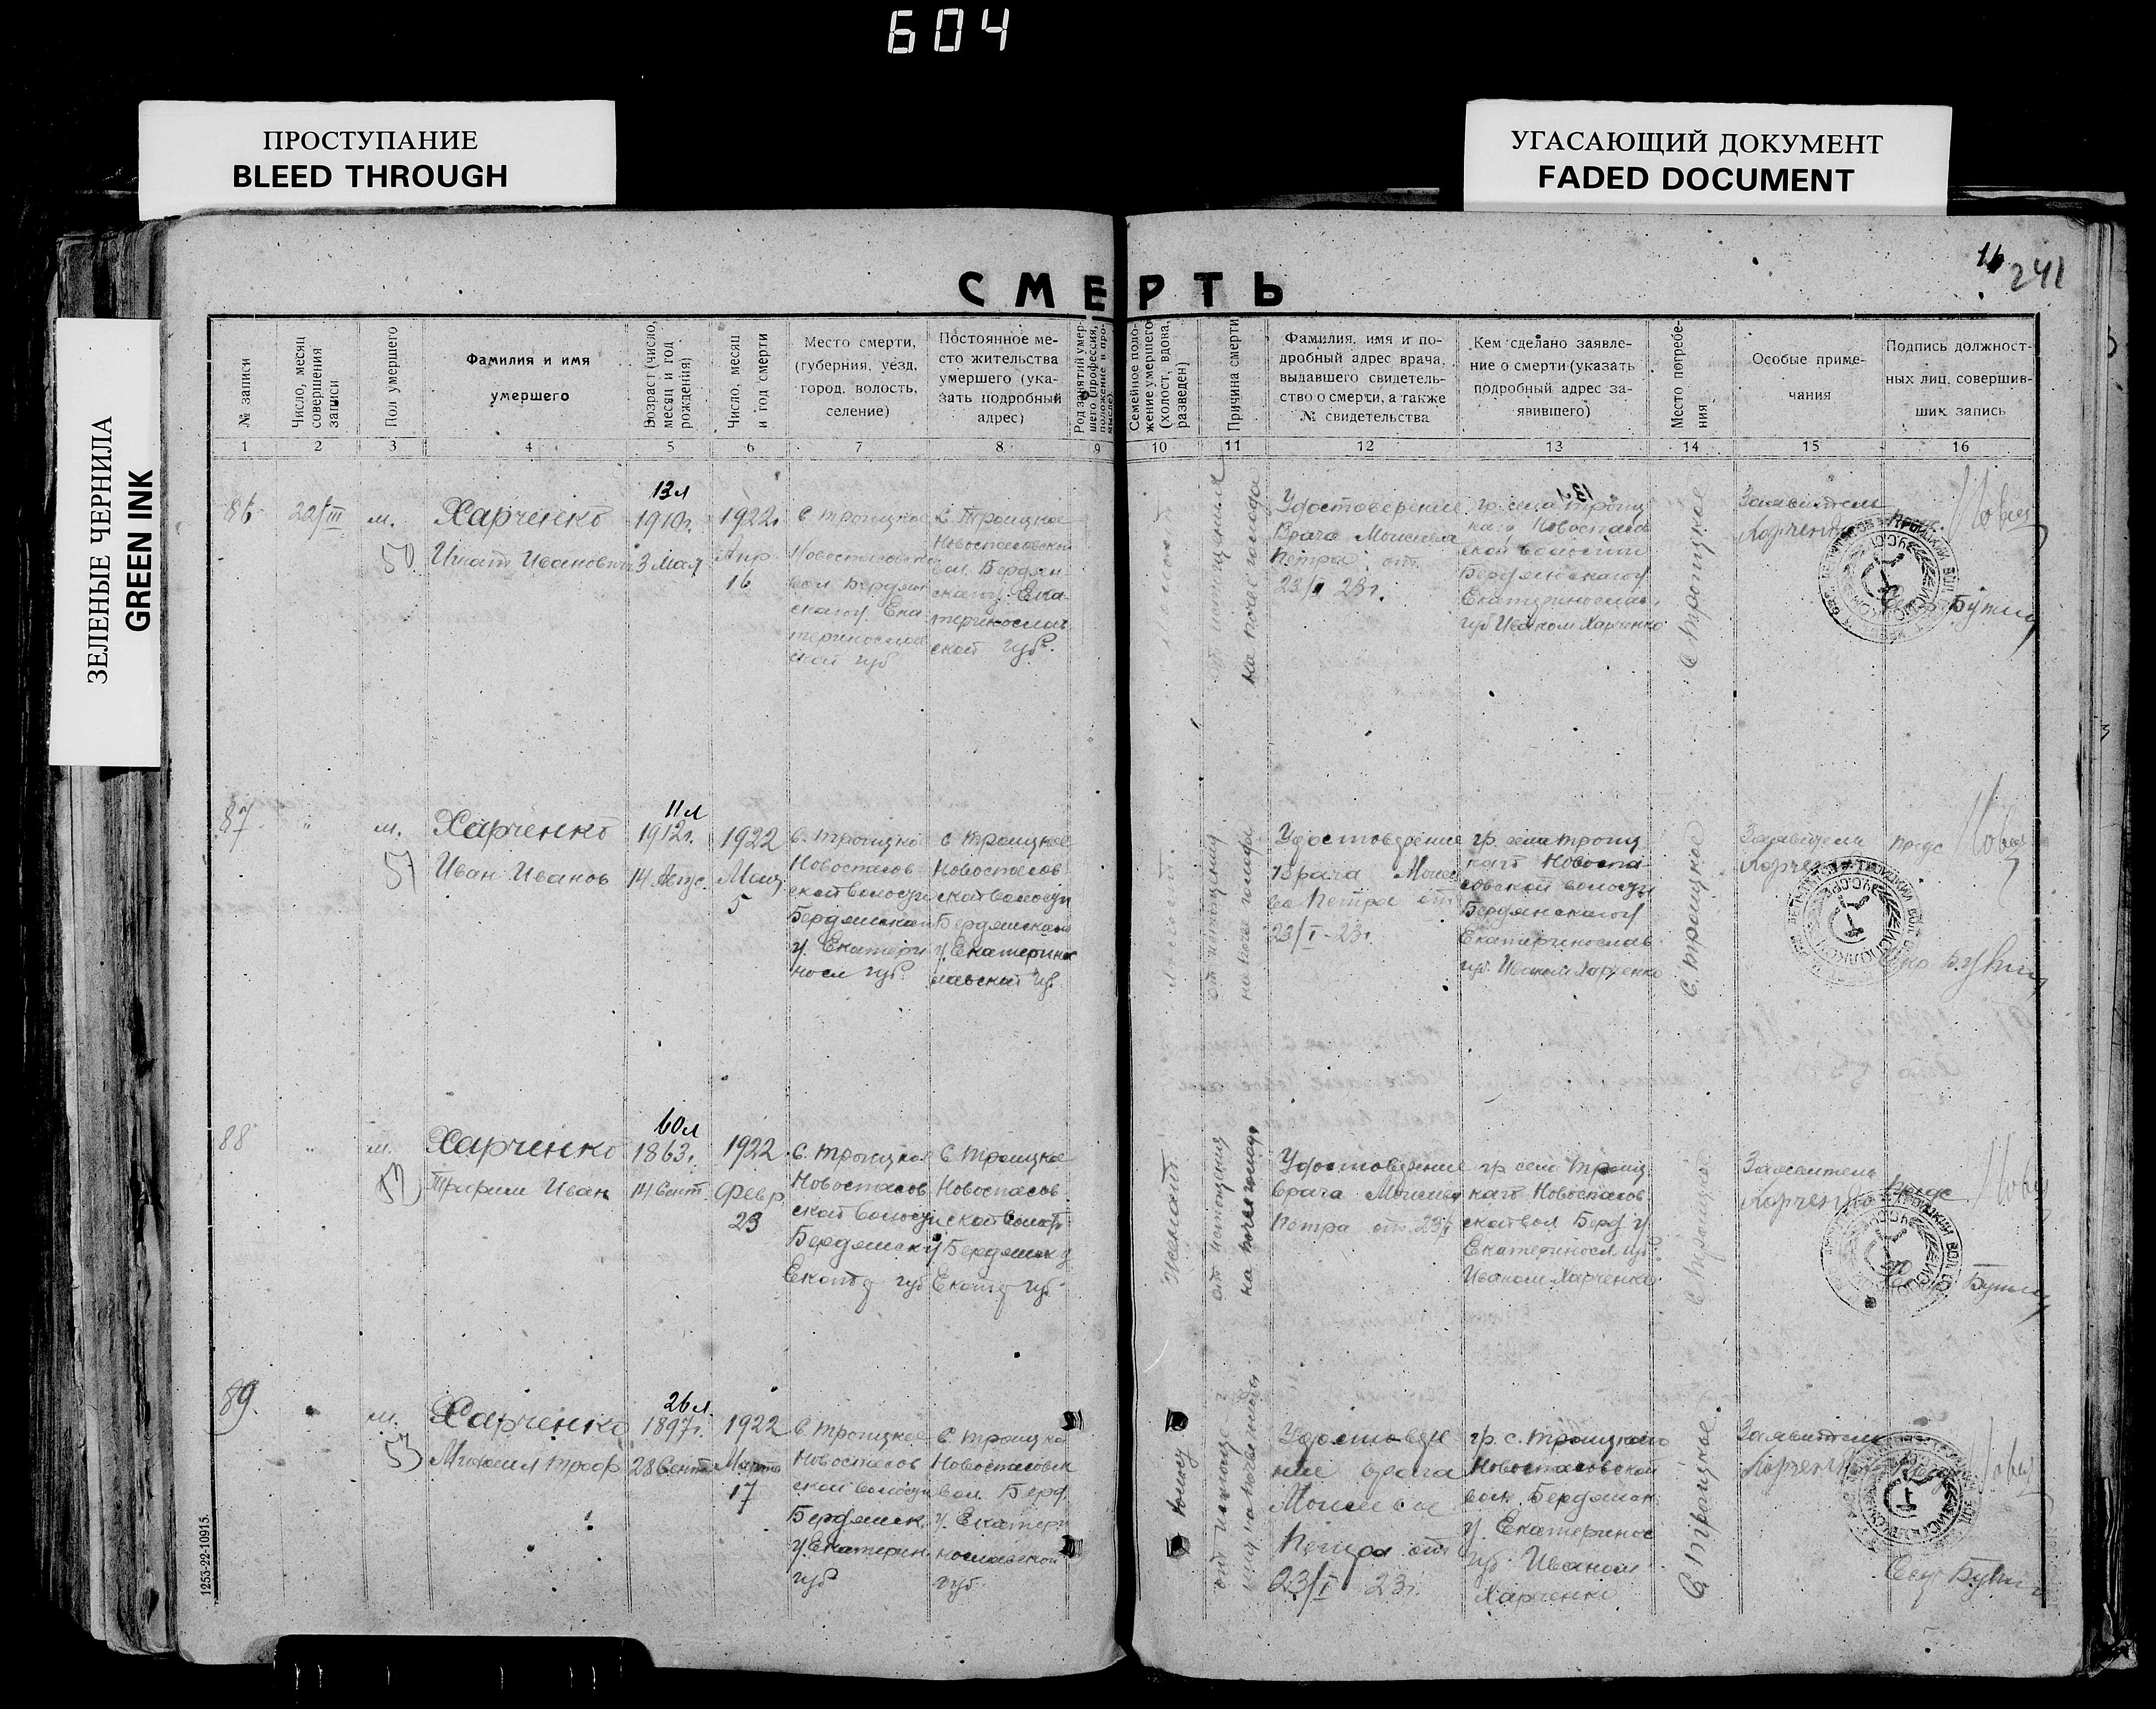 604
ПРОСТУПАНИЕ
BLEED THROUGH
УГАСАЮЩИЙ ДОКУМЕНТ
FADED DOCUMENT
ЗЕЛЕНЫЕ ЧЕРНИЛА
GREEN INK
241
СМЕРТЬ
№ записи
Число, месяц
совершения
записи
Пол умершего
Фамилия и имя
умершего
Возраст (число,
месяц и год
рождения)
Число, месяц
и год смерти
Место смерти,
(губерния, уезд,
город, волость,
селение)
Постоянное ме-
сто жительства
умершего (ука-
зать подробный
адрес)
Род занятий умер-
шего (профессия,
положение в про-
мысле)
Семейное поло-
жение умершего
(холост, вдова,
разведен)
Причина смерти
Фамилия, имя и по-
дробный адрес врача,
выдавшего свидетель-
ство о смерти, а также
№ свидетельства
Кем сделано заявле-
ние о смерти (указать
подробный адрес за-
явившего)
Место погребе-
ния
Особые приме-
чания
Подпись должност-
ных лиц, совершив-
ших запись
1 2 3 4 5 6 7 8 9 10 11 12 13 14 15 16
86
22/III
м.
50
Харченко
Игнат Иванович
13 л
1910 г.
3 Мая
1922 г
Апр
16
с Троицкое
Новоспасовской
вол. Бердян
ского у. Ека
теринослав
ской губ
с. Троицкое
Новоспасовской
вол. Бердян
ского у. Ека-
теринослав
ской губ.
от истощения
на почве голода
Удостоверение
Врача Моисеева
Петра от
23/I 23 г.
гр. села Троиц
каго Новоспасов
ской волости
Бердянского у
Екатеринослав.
губ Иваном Харченко
с Троицкое
Заявитель
Харченко
Бутин
87
"
м.
51
Харченко
Иван Иванов
11 л
1912 г.
14 Авгус.
1922
Мая
5
с. Троицкое
Новоспасов
ской волости
Бердянской
у. Екатери
носл губ.
с Троицкое
Новоспасов
ской волости
Бердянского
у. Екатерино
славской губ.
холост.
от истощения
на почве голода
Удостоверение
Врача Моисее
ва Петра от
23/I - 23 г.
гр. села Троиц
каго Новоспа
совской волости
Бердянского у
Екатеринослав
губ. Иваном Харченко
с. Троицкое
Заявитель
Харченко
пред
88
"
м.
Харченко
Трофим Иван
60 л
1863 г.
14 Сент.
1922
Февр
23
с. Троицкое
Новоспасов
ской волости
Бердянск у
с Троицкое
Новоспасов
ской волост
Бердянск у
Женат
от истощения
на почве голода
Удостоверение
врача Моисеева
Петра от 23/I
гр села Троиц
каго Новоспасов
ской вол Берд у
Екатериносл губ
Иваном Харченко
с Троицкое
Заявитель
Харченко
пред
Бутин
89.
"
м.
53
Харченко
Михаил Троф
26 л.
1897 г.
28 Сент
1922
Марта
17
с Троицкое
Новоспасов
ской волости
Бердянск.
у. Екатерин.
губ
с Троицкое
Новоспасовск
вол. Берд
у. Екатери
нославской
губ.
Удостовере
ние врача
Моисеева
Петра от
23/I 23 г.
гр. с. Троицкого
Новоспасовской
вол. Бердянск
у. Екатеринос
губ. Иваном
Харченко
с. Троицкое
Заявитель
Харченко
Бутин
1253-22-10915.